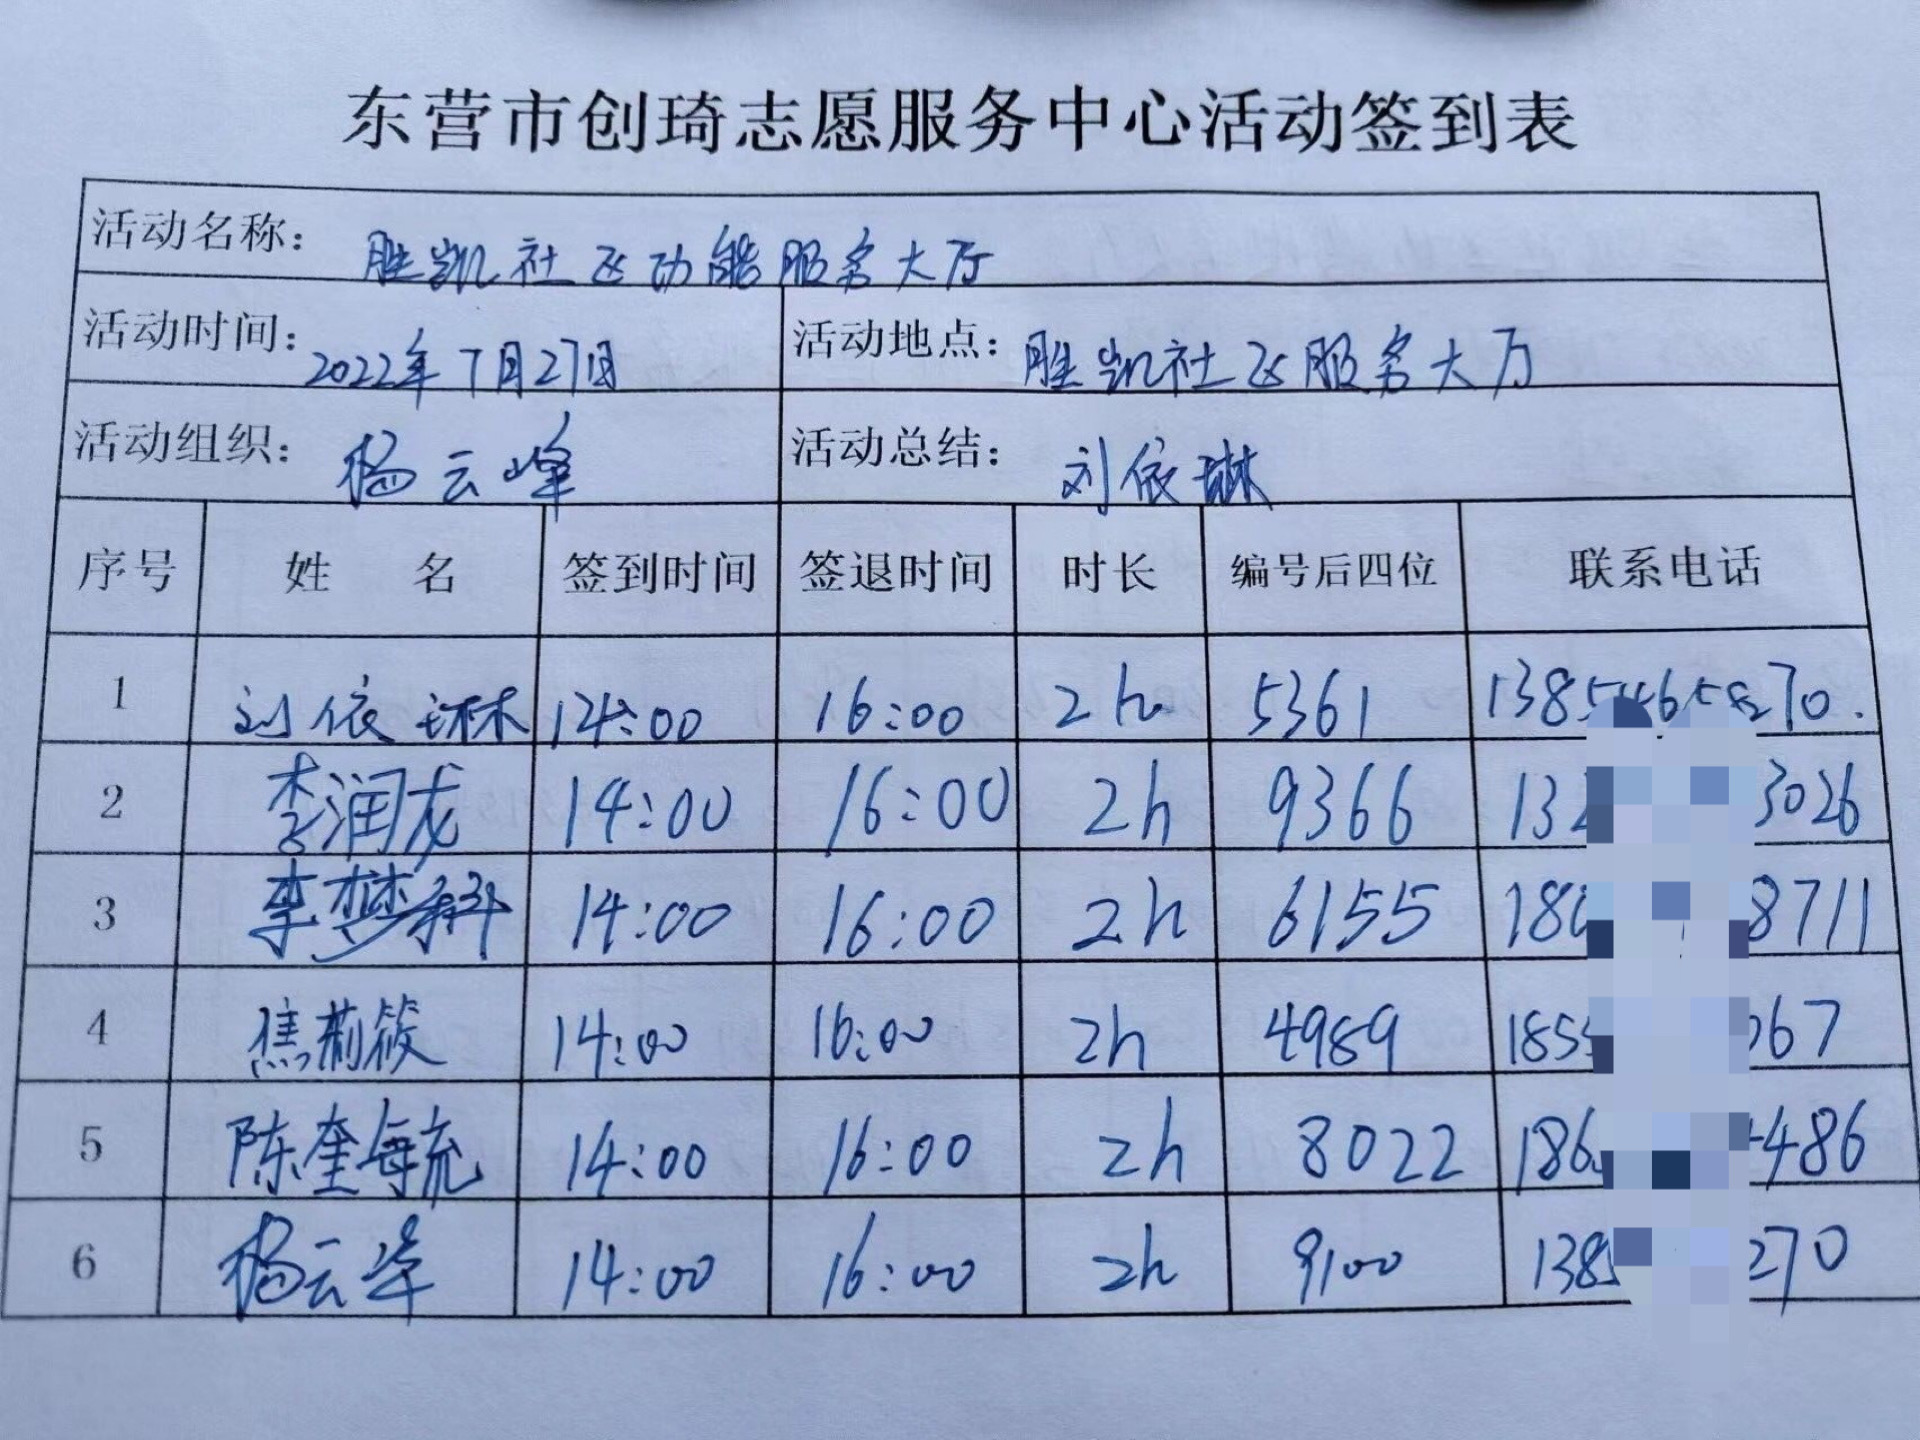 东营市创琦志愿服务中心活动签到表
活动名称： 胜凯社区功能服务大厅
活动时间： 2022年7月27日 活动地点： 胜凯社区服务大厅
活动组织： 杨云峰 活动总结： 刘依琳
序号 姓 名 签到时间 签退时间 时长 编号后四位 联系电话
1 刘依琳 14:00 16:00 2h 5361
2 李润龙 14:00 16:00 2h 9366 13 3026
3 李梦科 14:00 16:00 2h 6155 180 8711
4 焦莉筱 14:00 16:00 2h 4989 185 067
5 陈奎毓 14:00 16:00 2h 8022 186 486
6 杨云峰 14:00 16:00 2h 9100 138 270